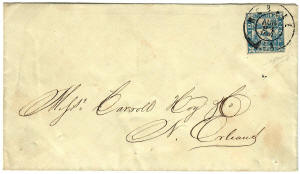 Messrs. Carroll Hoy & Co
N. Orleans